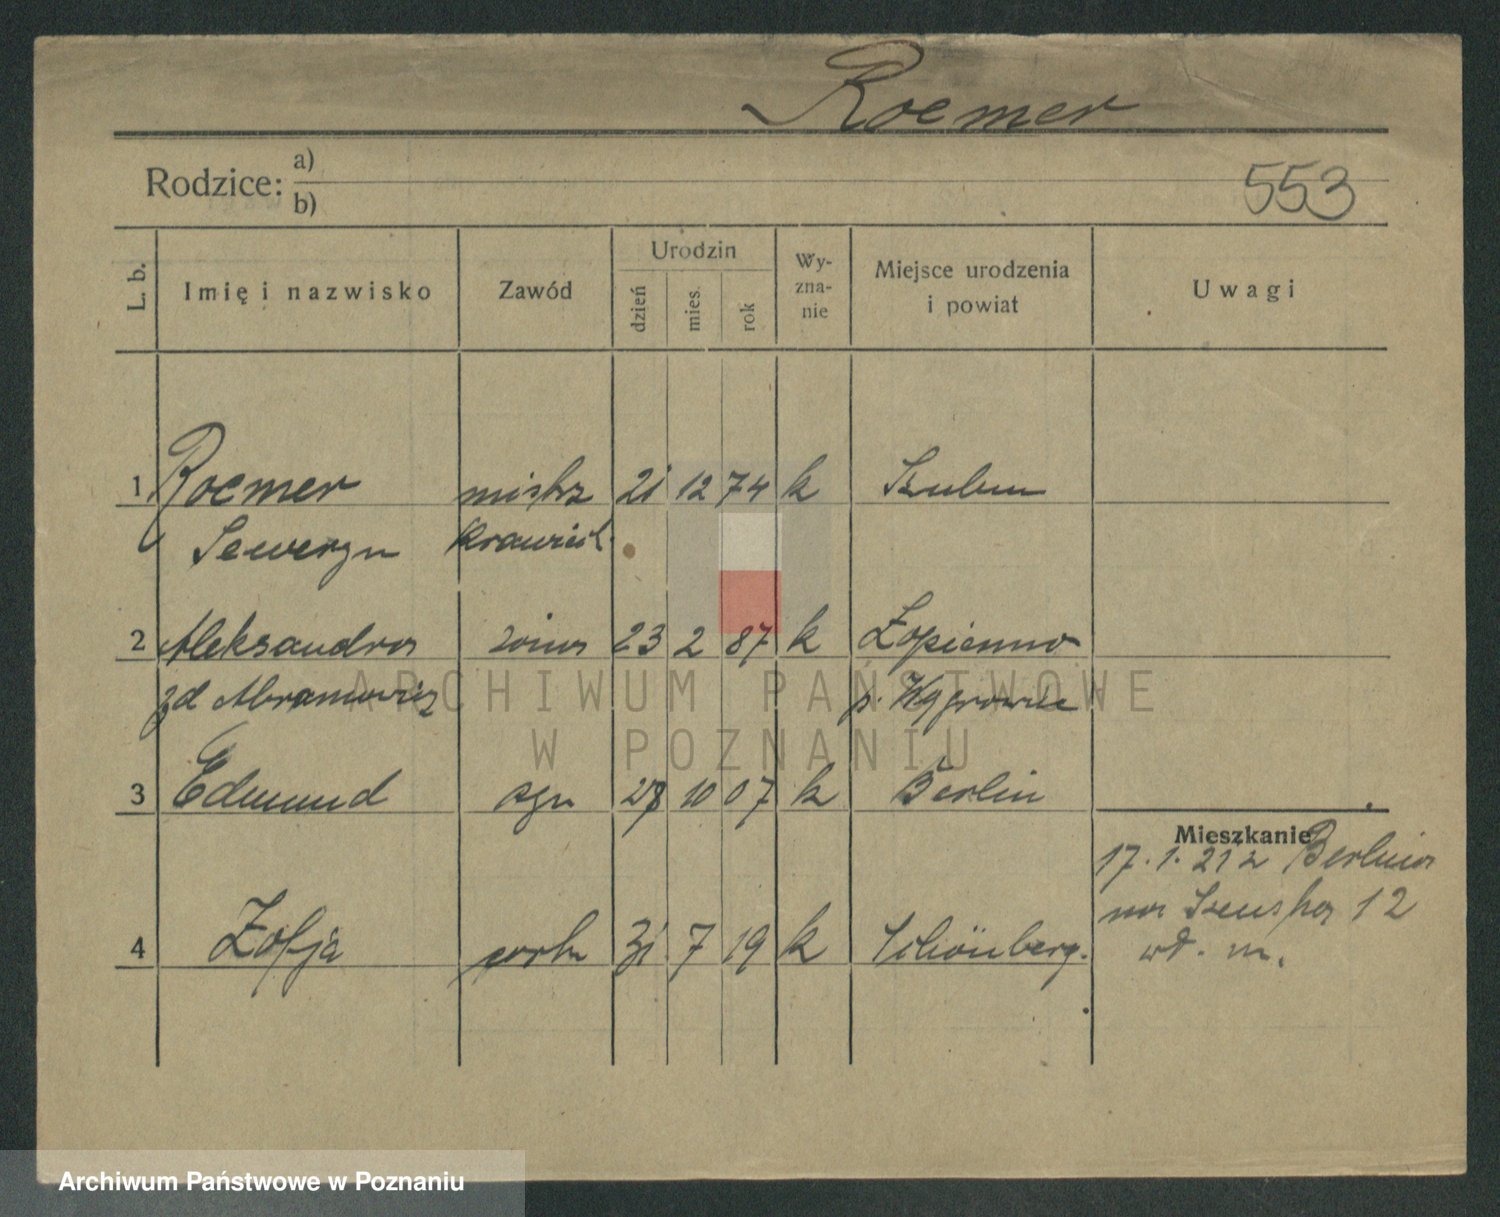 Roemer
Rodzice: a)
b)
553
L. b. Imię i nazwisko Zawód Urodzin dzień mies. rok Wy-zna-nie Miejsce urodzenia i powiat Uwagi
1 Roemer mistrz 21 12 74 k Szubin
Seweryn krawiecki
2 Aleksandra żona 23 2 87 k Łopienno
zd Abramowicz p. Wągrowiec
ARCHIWUM PAŃSTWOWE
W POZNANIU
3 Edmund syn 28 10 07 k Berlin
Mieszkanie
17. 1. 21 z Berlina
na 12
4 Zofja córka 31 7 19 k Schönberg.
wł. m.
Archiwum Państwowe w Poznaniu